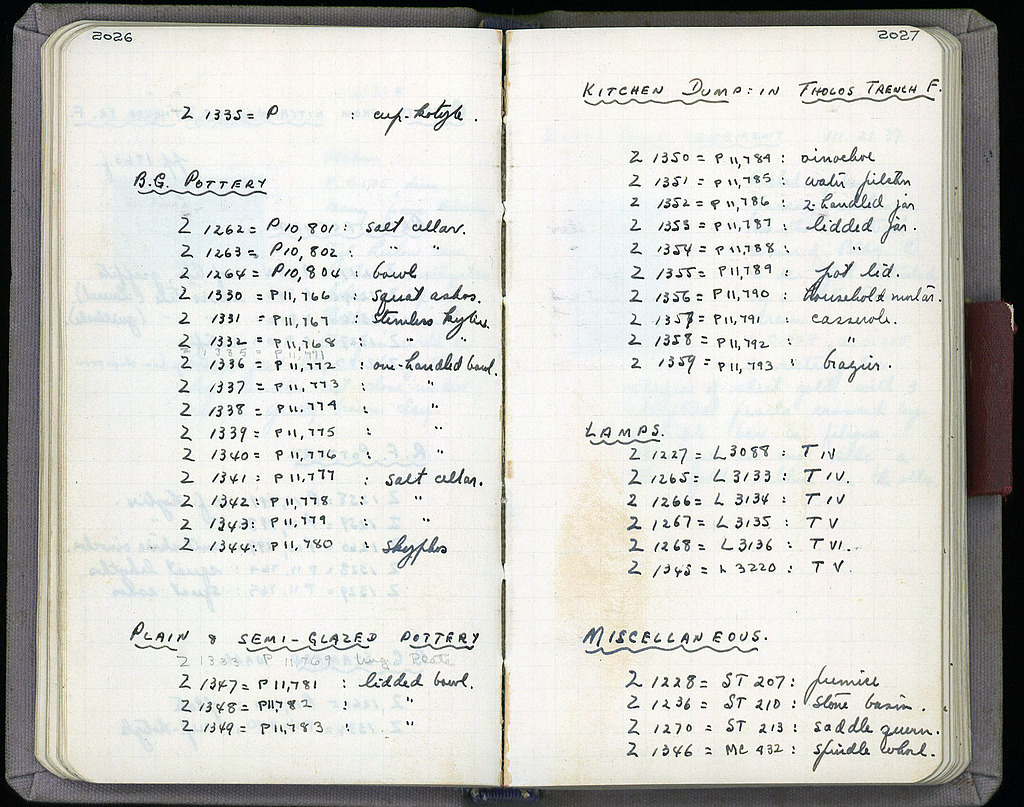 2026
Z 1335 = P : cup-kotyle.
B.G. POTTERY
Z 1262 = P10,801 : salt cellar.
Z 1263 = P10,802 : " "
Z 1264 = P10,804 : bowl
Z 1330 = P11,766 : squat askos.
Z 1331 = P11,767 : stemless kylix.
Z 1332 = P11,768 : " "
Z 1335 = P11,771
Z 1336 = P11,772 : one-handled bowl.
Z 1337 = P11,773 : "
Z 1338 = P11,774 : "
Z 1339 = P11,775 : "
Z 1340 = P11,776 : "
Z 1341 = P11,777 : salt cellar.
Z 1342 = P11,778 : "
Z 1343 = P11,779 : "
Z 1344 = P11,780 : skyphos
PLAIN & SEMI-GLAZED POTTERY
Z 1333 P 11769 Plate
Z 1347 = P11,781 : lidded bowl.
Z 1348 = P11,782 : "
Z 1349 = P11,783 : "
2027
KITCHEN DUMP: IN THOLOS TRENCH F.
Z 1350 = P11,784 : oinochoe
Z 1351 = P11,785 : water pitcher
Z 1352 = P11,786 : 2-handled jar
Z 1353 = P11,787 : lidded jar.
Z 1354 = P11,788 : "
Z 1355 = P11,789 : pot lid.
Z 1356 = P11,790 : household mortar.
Z 1357 = P11,791 : casserole.
Z 1358 = P11,792 : "
Z 1359 = P11,793 : brazier.
LAMPS.
Z 1227 = L 3088 : T IV
Z 1265 = L 3133 : T IV.
Z 1266 = L 3134 : T IV
Z 1267 = L 3135 : T V
Z 1268 = L 3136 : T VI.
Z 1345 = L 3220 : T V.
MISCELLANEOUS.
Z 1228 = ST 207 : pumice
Z 1236 = ST 210 : stone basin.
Z 1270 = ST 213 : saddle quern.
Z 1346 = MC 432 : spindle whorl.